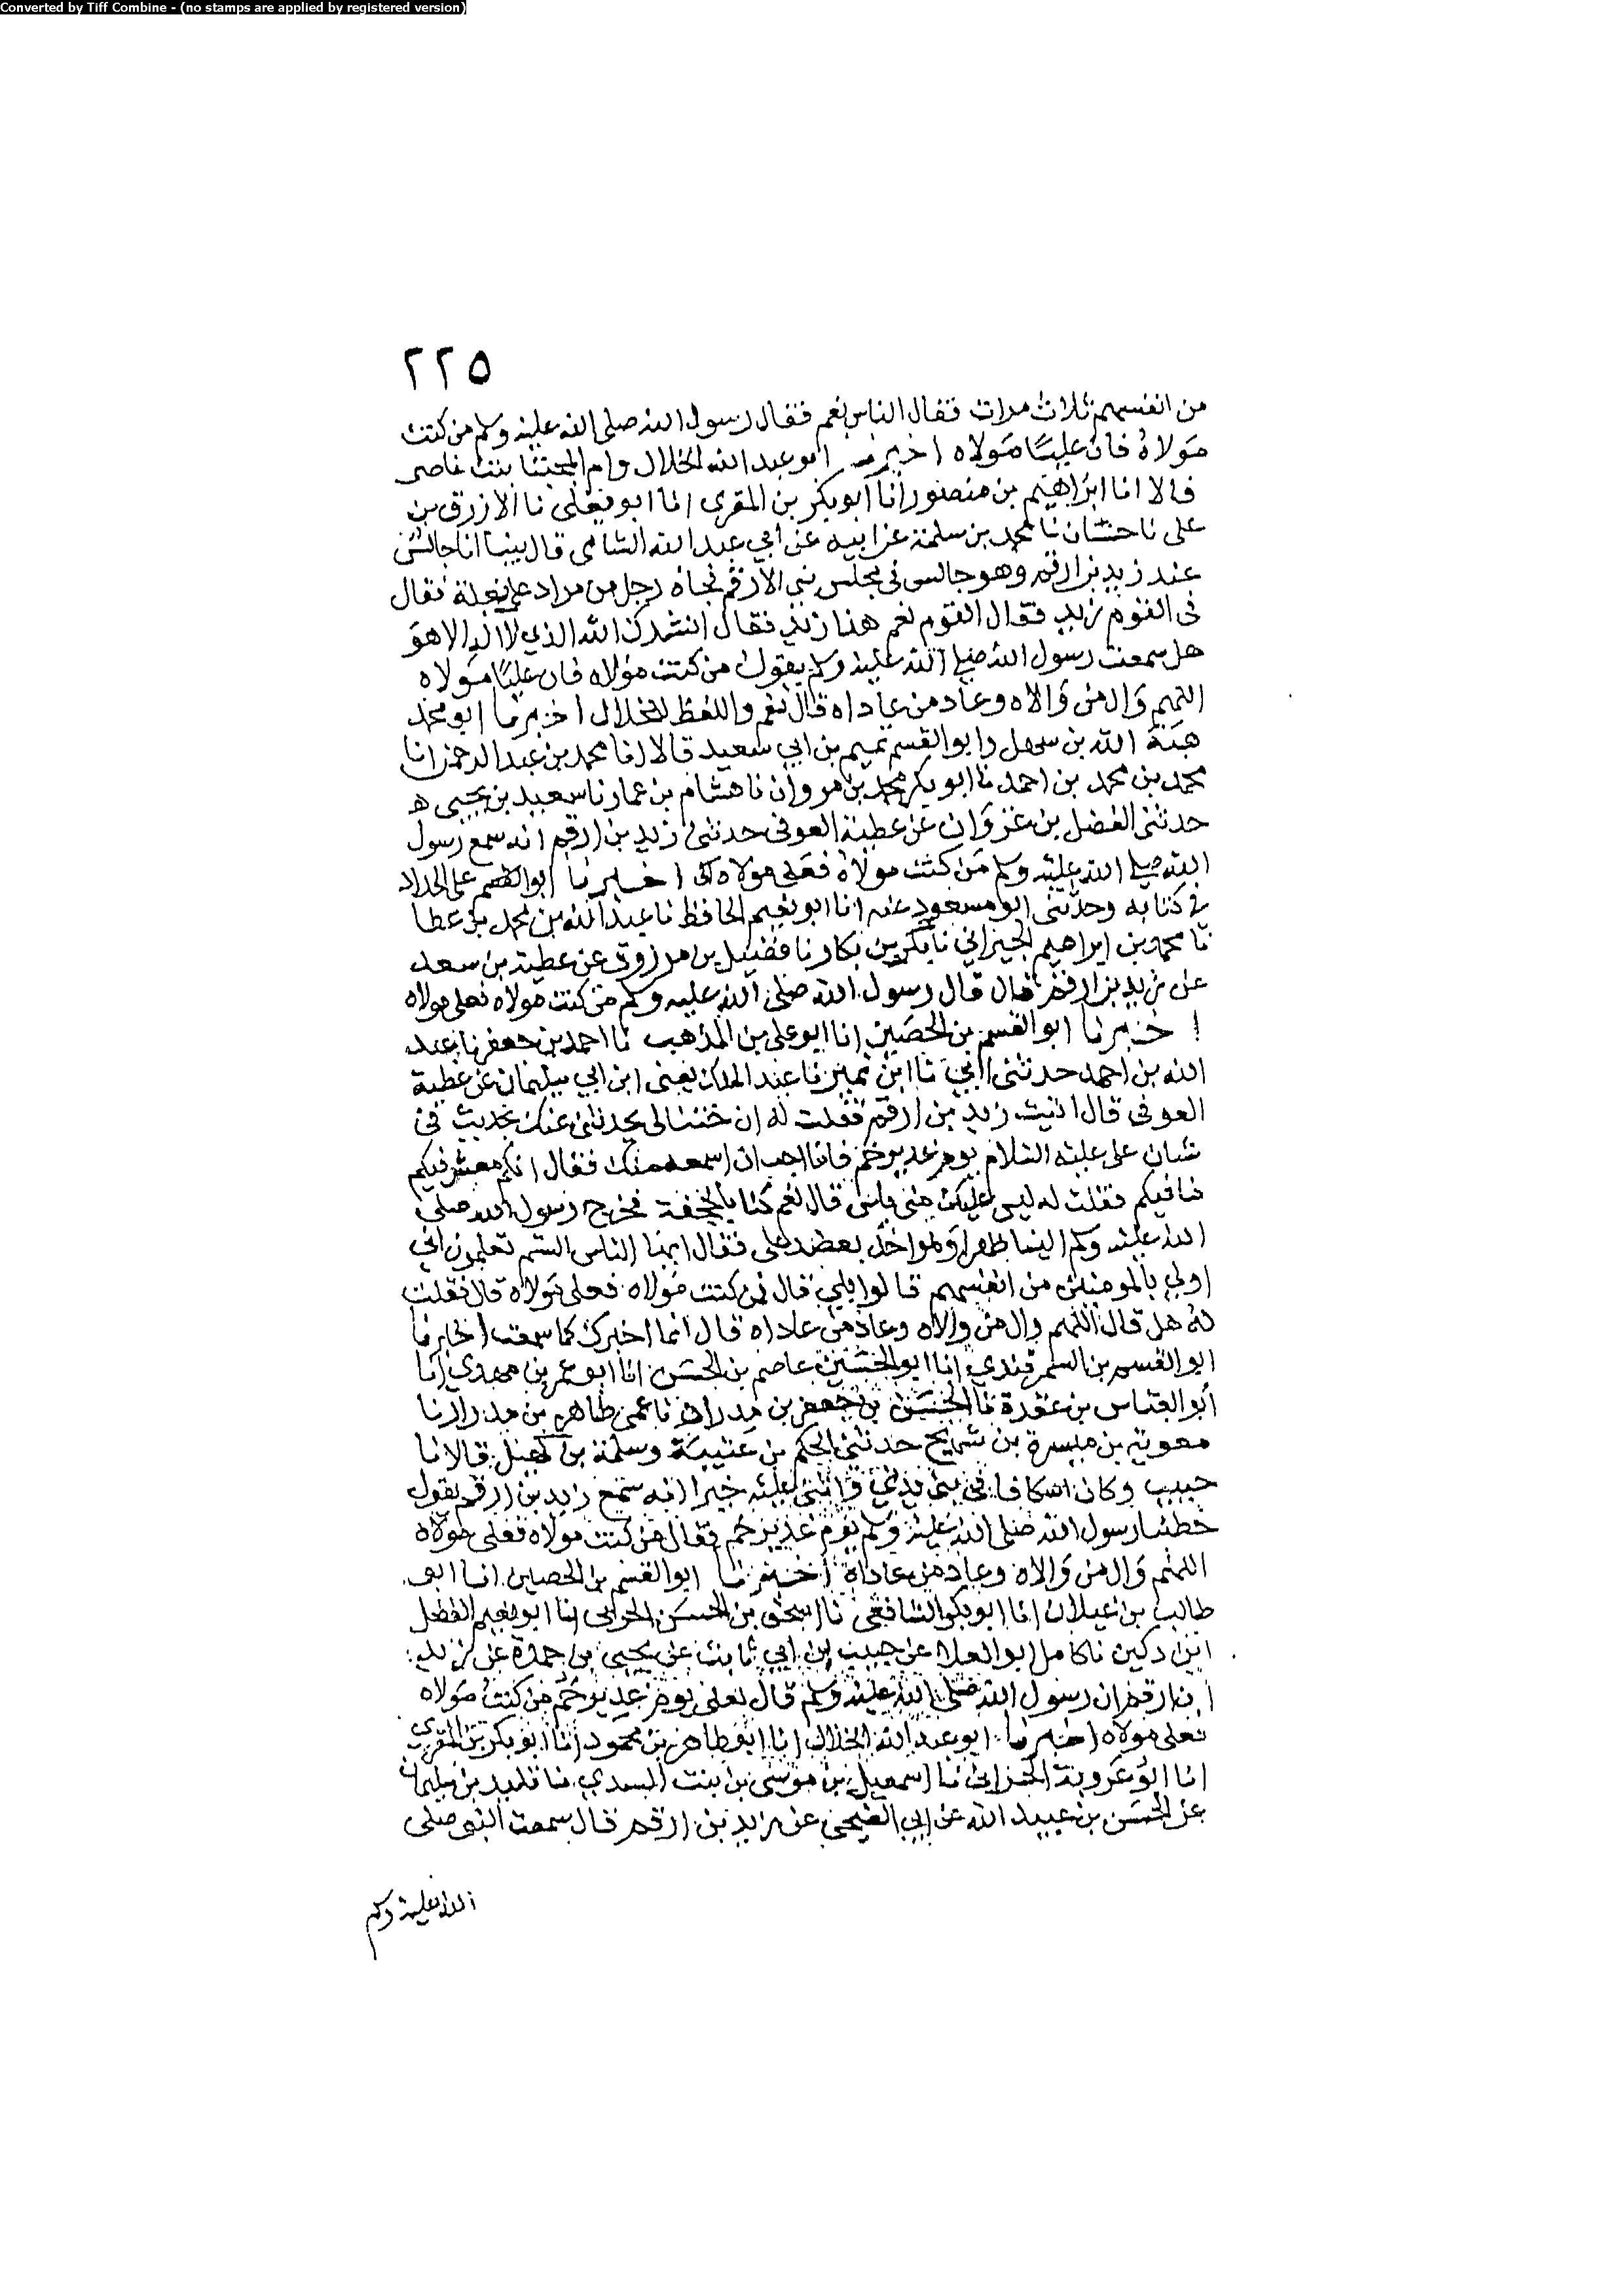 Converted by Tiff Combine - (no stamps are applied by registered version)
٢٢٥
من انفسهم ثلاث مرات فقال الناس نعم فقال رسول الله صلى الله عليه وسلم من كنت
مولاه فان عليا مولاه اخبرنا ابو عبد الله الخلال وام المجتبا بنت ناصر
قالا انا ابراهيم بن منصور انا ابو بكر بن المقرى انا ابو يعلى نا الازرق بن
على نا حسان نا محمد بن سلمة عن ابيه عن ابي عبد الله الشامى قال بينا انا جالس
عند زيد بن ارقم وهو جالس فى مجلس بنى الارقم فجاه رجل من مراد على بغلة فقال
فى القوم زيد فقال القوم نعم هذا زيد فقال انشدك الله الذي لا اله الا هو
هل سمعت رسول الله صلى الله عليه وسلم يقول من كنت مولاه فان عليا مولاه
اللهم وال من والاه وعاد من عاداه قال نعم واللفظ للخلال اخبرنا ابو محمد
هبة الله بن سهل وابو القسم تميم بن ابي سعيد قالا انا محمد بن عبد الرحمن انا
محمد بن محمد بن احمد نا ابو بكر محمد بن مروان نا هشام بن عمار نا سعيد بن يحيى
حدثنى الفضل بن غزوان عن عطية العوفى حدثنى زيد بن ارقم انه سمع رسول
الله صلى الله عليه وسلم من كنت مولاه فعلى مولاه اخبرنا ابو القسم على الحداد
في كتابه وحدثنى ابو مسعود عنه انا ابو نعيم الحافظ نا عبد الله بن محمد بن عطا
نا محمد بن ابراهيم الجيرانى نا بكر بن بكار نا فضيل بن مرزوق عن عطية بن سعد
عن زيد بن ارقم قال قال رسول الله صلى الله عليه وسلم من كنت مولاه فعلى مولاه
اخبرنا ابو القسم بن الحصين انا ابو على بن المذهب نا احمد بن جعفر نا عبد
الله بن احمد حدثنى ابي نا ابن نمير نا عبد الملك يعنى ابن ابي سليمان عن عطية
العوفى قال اتيت زيد بن ارقم فقلت له ان ختنا لى يحدثنى عنك بحديث فى
شان على عليه السلام يوم غدير خم فانا احب ان اسمعه منك فقال انكم معشر فيكم
ما فيكم فقلت له ليس عليك منى باس قال نعم كنا بالجحفة فخرج رسول الله صلى
الله عليه وسلم الينا ظهرا وهو اخذ بعضد على فقال ايها الناس الستم تعلمون انى
اولى بالمومنين من انفسهم قالوا بلى قال فمن كنت مولاه فعلى مولاه قال فقلت
له هل قال اللهم وال من والاه وعاد من عاداه قال انما اخبرك كما سمعت اخبرنا
ابو القسم بن السمرقندي انا ابو الحسين عاصم بن الحسن انا ابو عمر بن مهدي انا
أبو العباس بن عقدة نا الحسن بن جعفر بن مدرار نا عمى طاهر بن مدرار نا
معوية بن ميسرة بن شريح حدثنى الحكم بن عتيبة وسلمة بن كهيل قالا نا
حبيب وكان اسكافا فى بنى بدي واثنى عليه خيرا انه سمع زيد بن ارقم يقول
خطبنا رسول الله صلى الله عليه وسلم يوم غدير خم فقال من كنت مولاه فعلى مولاه
اللهم وال من والاه وعاد من عاداه اخبرنا ابو القسم بن الحصين انا ابو
طالب بن غيلان انا ابو بكر الشافعى نا اسحق بن الحسن الحربى نا ابو نعيم الفضل
ابن دكين نا كامل ابو العلا عن حبيب بن ابي ثابت عن يحيى بن جعدة عن زيد
ابن ارقم ان رسول الله صلى الله عليه وسلم قال لعلى يوم غدير خم من كنت مولاه
فعلى مولاه اخبرنا ابو عبد الله الخلال انا ابو طاهر بن محمود انا ابو بكر بن المقرى
انا ابو عروبة الحرانى نا اسمعيل بن موسى بن بنت السدي نا تليد بن سليمان
عن الحسن بن عبيد الله عن ابي الضحى عن زيد بن ارقم قال سمعت النبى صلى
الله عليه وسلم